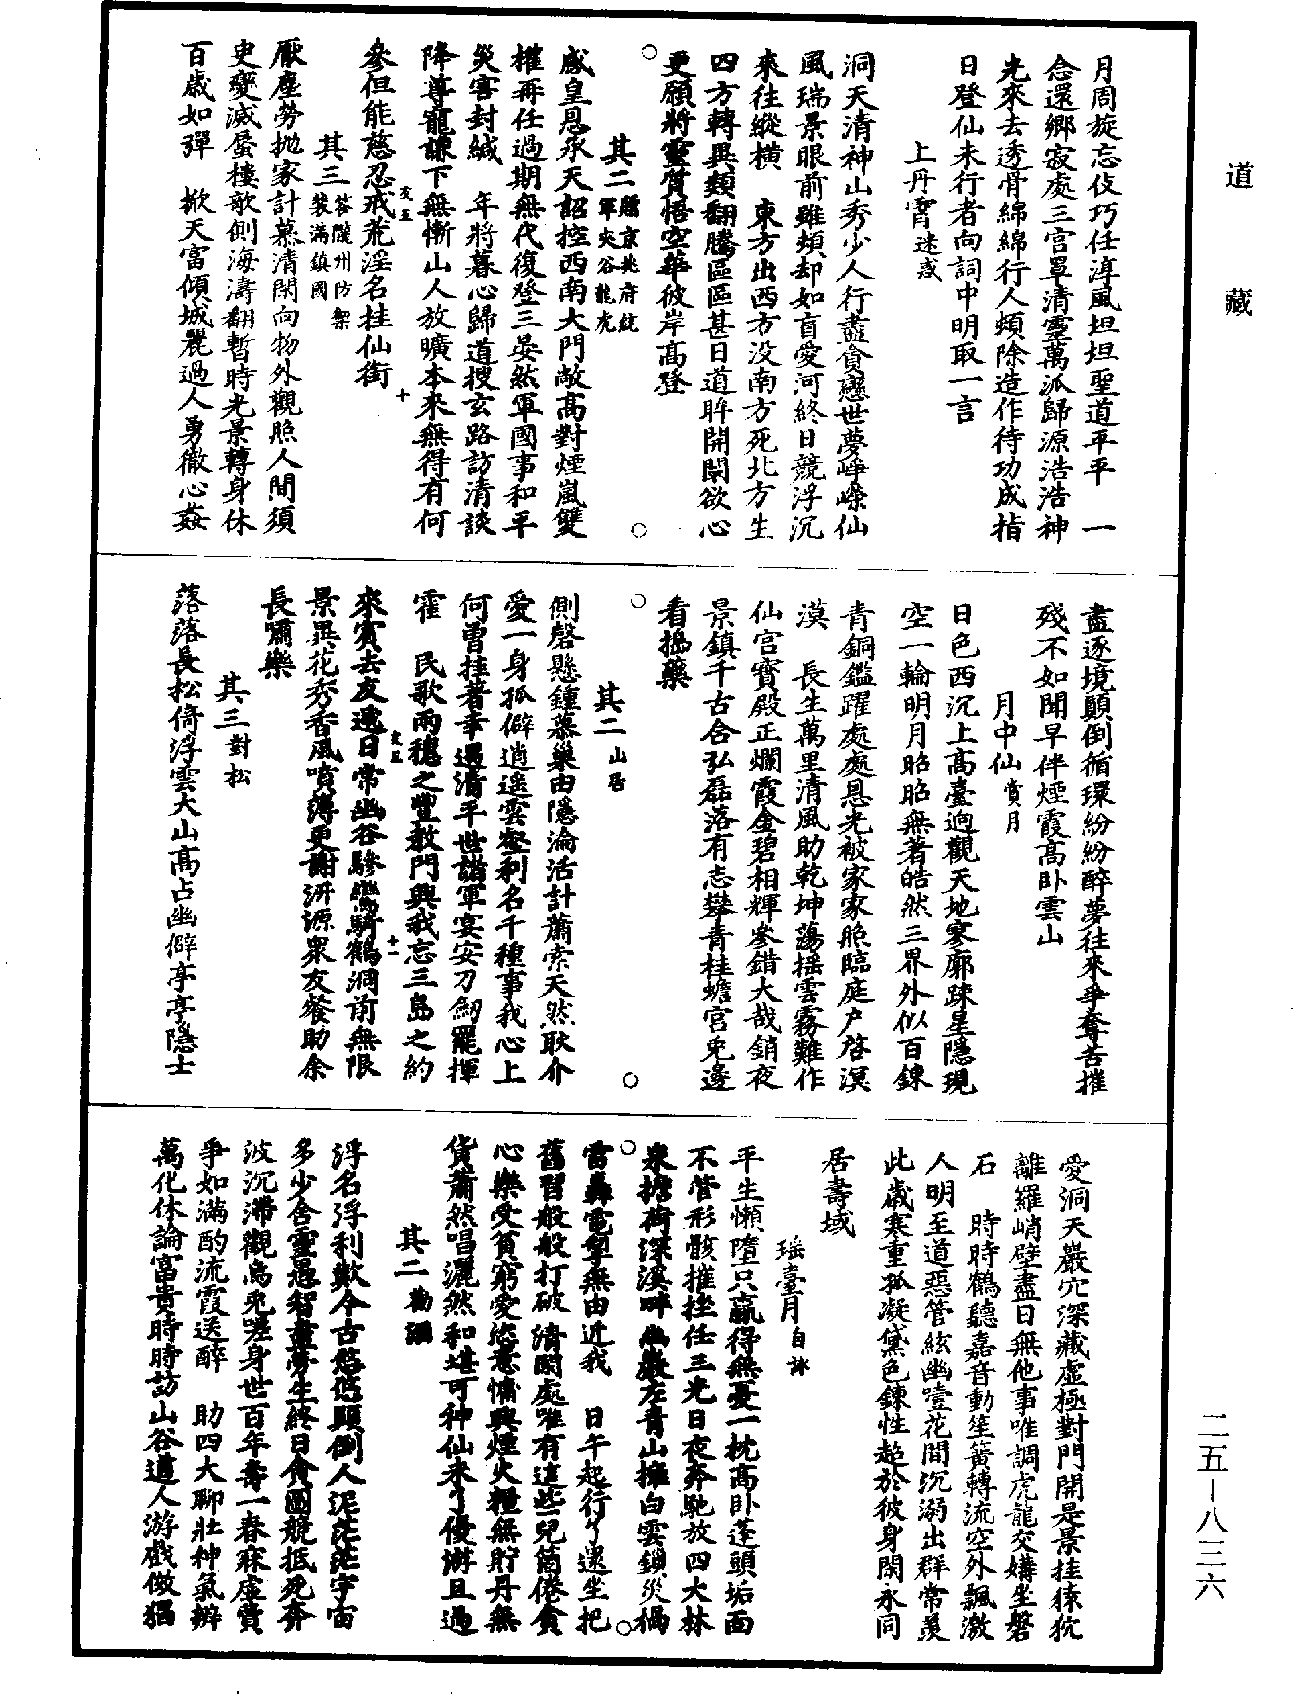 道藏
月周旋忘伎巧任淳風坦坦聖道平平　一
念還鄉寂處三宮罩清靈萬派歸源浩浩神
光來去透骨綿綿行人頻除造作待功成指
日登仙未行者向詞中明取一言
上丹霄迷惑
洞天清神山秀少人行盡貪戀世夢崢嶸仙
風瑞景眼前雖頻却如盲愛河終日競浮沉
來往縱橫　東方出西方没南方死北方生
四方轉異類翻騰區區甚日道眸開闡欲心
更願將靈質悟空華彼岸高登
其二贈京兆府統軍夾谷龍虎
感皇恩承天詔控西南大門敞高對煙嵐雙
權再任過期無代復登三晏然軍國事和平
災害封緘　年將暮心歸道搜玄路訪清談
降尊寵謙下無慚山人放曠本來無得有何
參但能慈忍戒荒淫名挂仙銜
友五　十
其三答隴州防禦裴滿鎮國
厭塵勞抛家計慕清閑向物外觀照人間須
臾變滅蜃樓歌側海濤翻暫時光景轉身休
百歲如彈　掀天富傾城麗過人勇徹心姦
盡逐境顛倒循環紛紛醉夢往來爭奪苦摧
殘不如閑早伴煙霞高卧雲山
月中仙賞月
日色西沉上高臺逈觀天地寥廓踈星隱現
空一輪明月昭昭無著皓然三界外似百鍊
青銅鑑躍處處恩光被家家照臨庭户啓溟
漠　長生萬里清風助乾坤蕩摇雲霧難作
仙宮寶殿正爛霞金碧相輝參錯大哉銷夜
景鎮千古合弘磊落有志攀青桂蟾宮兔邊
看搗藥
其二山居
側磬懸鍾慕巢由隱淪活計蕭索天然耿介
愛一身孤僻逍遥雲壑利名千種事我心上
何曾挂著幸遇清平世諸軍宴安刀劒罷揮
霍　民歌兩穗之豐教門興我忘三島之約
友五　十一
來賓去友遞日常幽谷驂鸞騎鶴洞前無限
景異花秀香風噴薄更謝汧源衆友餐助余
長嘯樂
其三對松
落落長松倚浮雲大山高占幽僻亭亭隱士
愛洞天巖穴深藏虚極對門開是景挂猿狖
離羅峭壁盡日無他事唯調虎龍交媾坐磐
石　時時鶴聽嘉音動笙簧轉流空外飄激
人明至道惡管絃幽噎花間沉溺出群常羨
此歲寒重孤凝黛色鍊性超於彼身閑永同
居壽域
瑶臺月自詠
平生懶墮只贏得無憂一枕高卧蓬頭垢面
不管形骸摧挫任三光日夜奔馳放四大林
泉擔荷深溪畔幽巖左青山擁白雲鎖災禍
雷轟電掣無由近我　日午起行行還坐把
舊習般般打破清閑處唯有這些兒箇倦貪
心樂受貧窮愛恣意慵興煙火糧無貯丹無
貨蕭然唱灑然和堪可神仙來了優游且過
其二勸酒
浮名浮利歎今古悠悠顛倒人泥茫茫宇宙
多少含靈愚智晝夢生終日貪圖競抵死奔
波沉滯觀烏兔嗟身世百年壽一春寐虚費
爭如滿酌流霞送醉　助四大聊壯神氣辦
萬化休論富貴時時訪山谷道人游戲做猖
二五—八三六